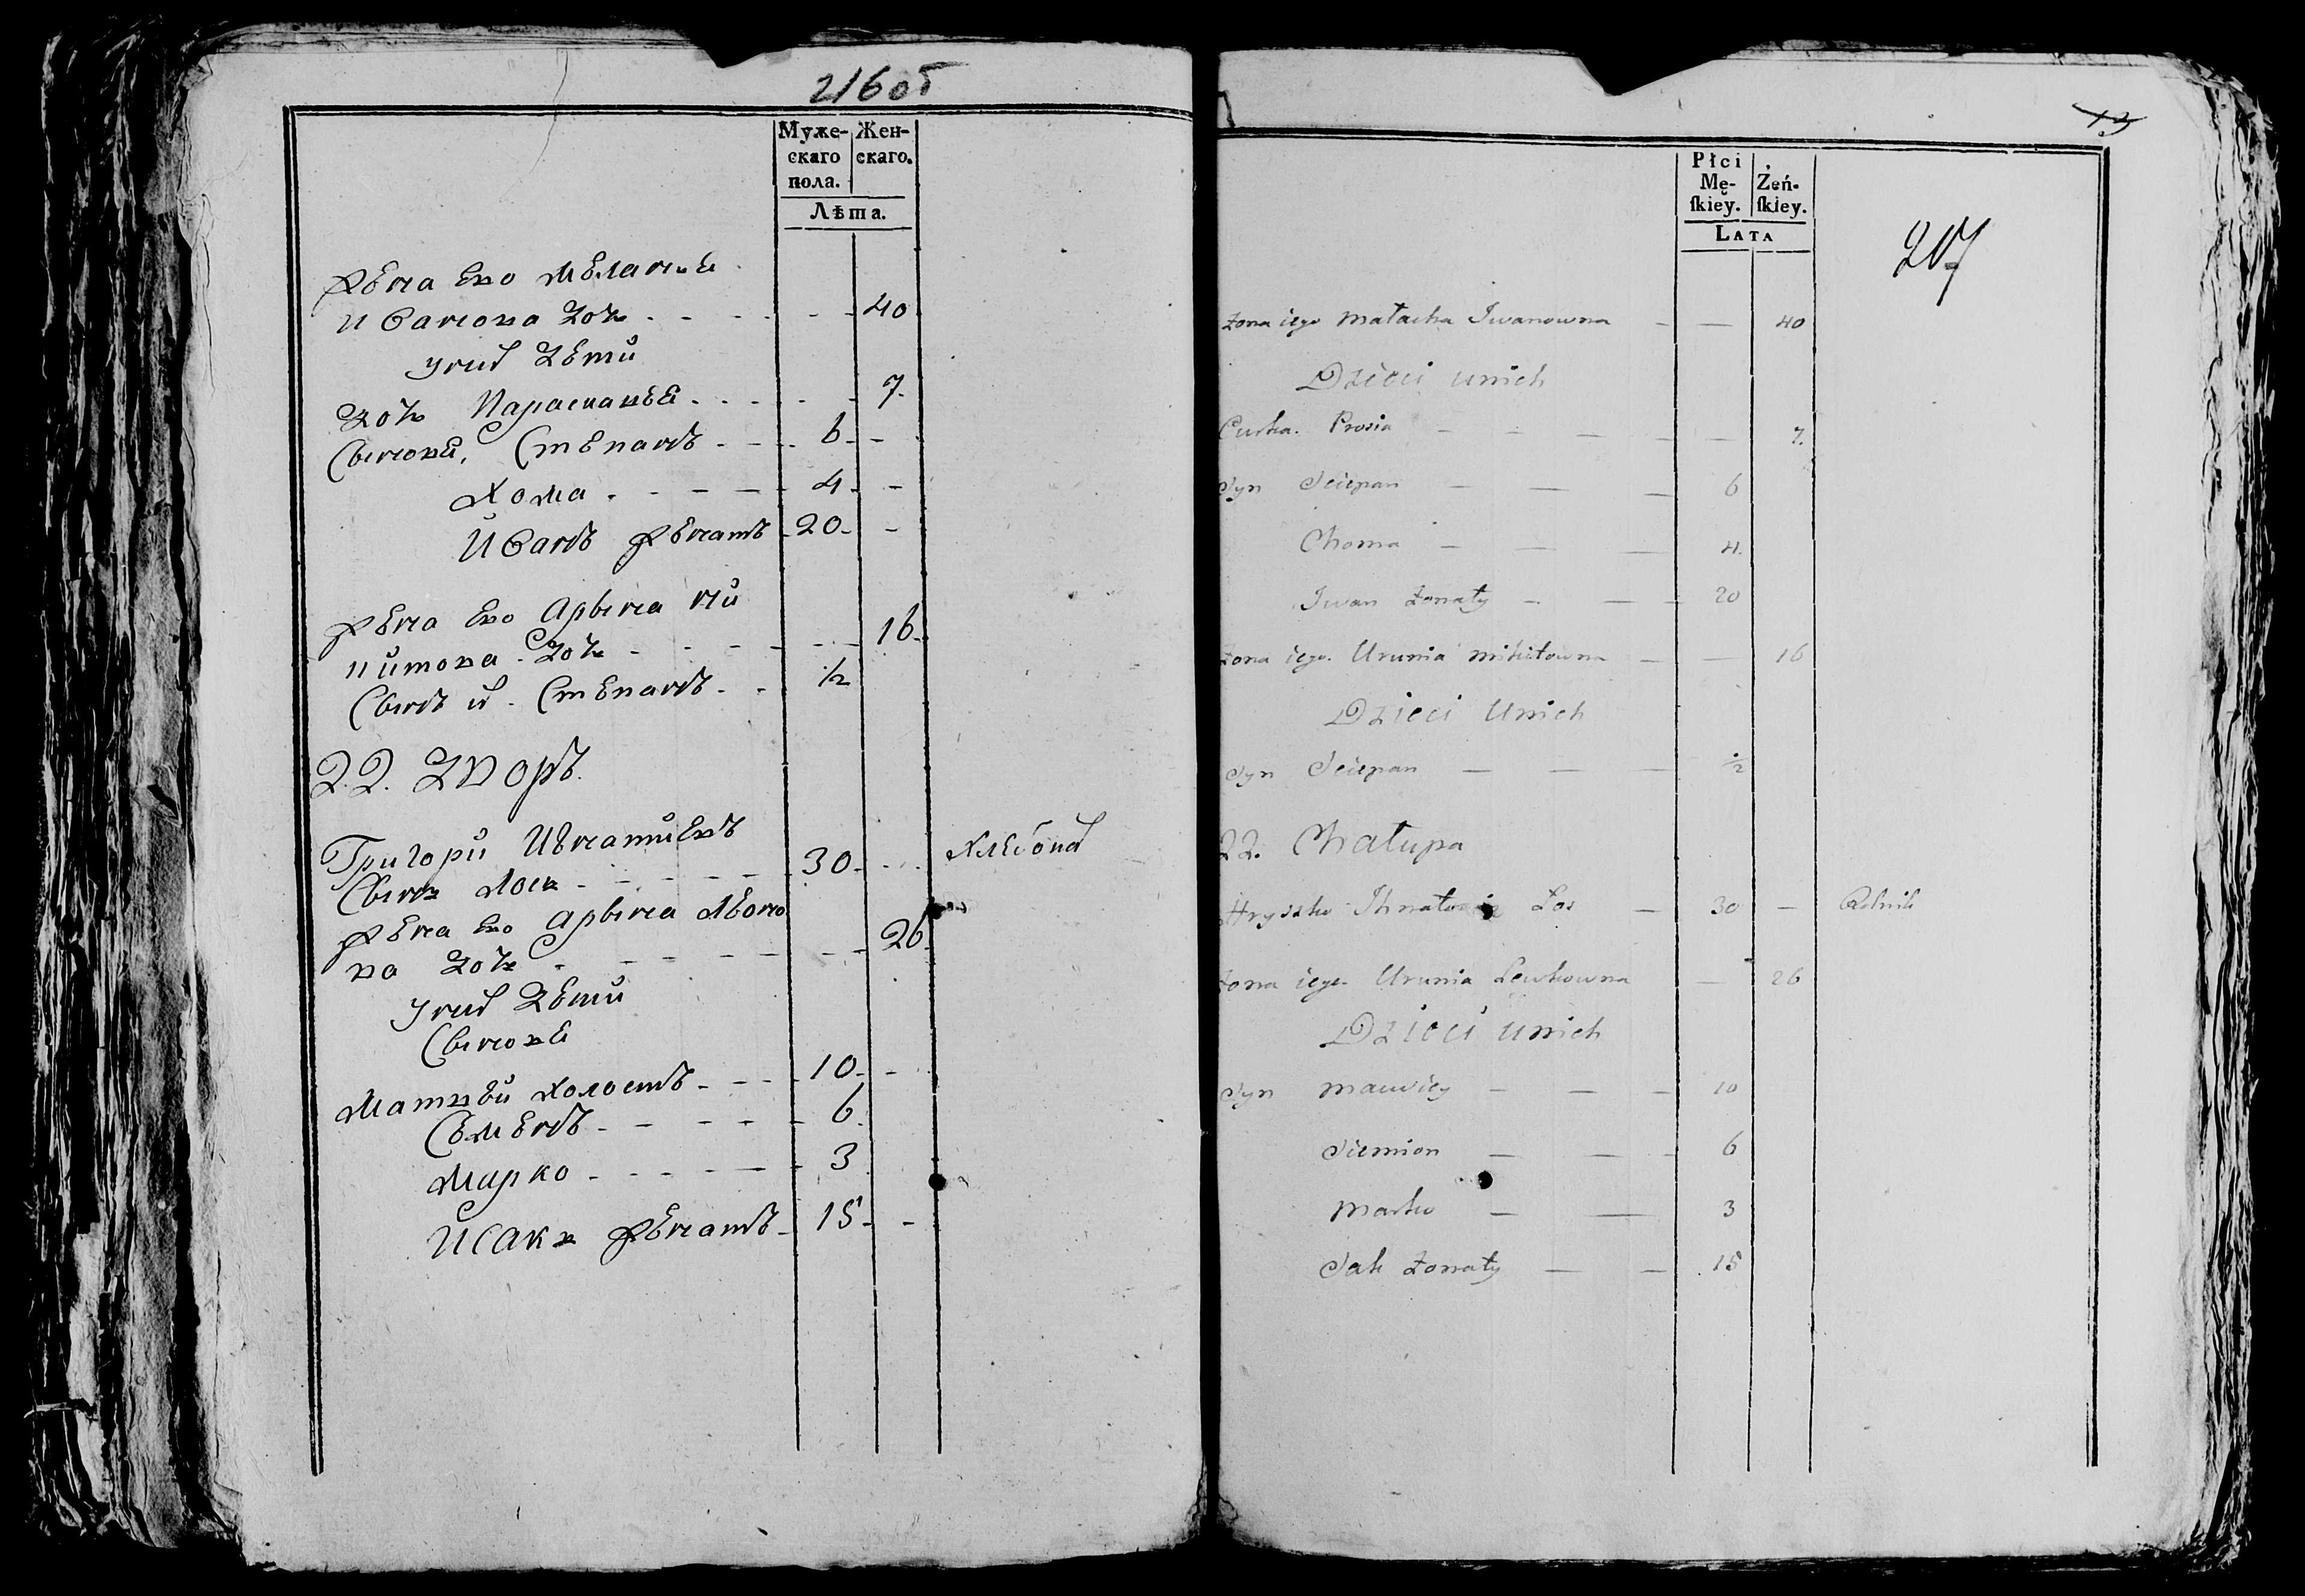 216 об
Муже-
скаго
пола.
Жен-
скаго.
Лѣта.
жена Его Меланъя
Иванова дочь 40
у них Дети
дочь Параскавъя 7
Сыновя, Степанъ 6
Хома 4
Иванъ женатъ 20
жена Его Арына Ни
китова дочь 16
Сынъ их Степанъ 1/2
22. Дворъ.
Григори Игнатиевъ
Сынъ Лось 30 Хлебопа
жена Его Арына Левко
ва дочь 26
у них Дети
Сыновя
Матвѣй холостъ 10
Семенъ 6
Марко 3
Исакъ женатъ 15
13
217
Płci
Mę-
ſkiey.
Żeń-
ſkiey.
LATA
żona iego Małacha Iwanowna — — 40
Dzieci unich
Curka. Prosia — — — — — 7.
Syn Sciepan — — — 6
Choma — — — 4.
Iwan żonaty — — 20
żona iego. Urunia Mikitowna — — 16
Dzieci Unich
Syn Sciepan — — — 1/2
22. Chałupa
Hryszko Ihnatowicz Łos — 30 — Rolnik
żona iego. Urunia Lewkowna — 26
Dzieci unich
Syn Maciey — — — 10
Siemion — — — 6
Marko — — 3
Sak żonaty — — 15